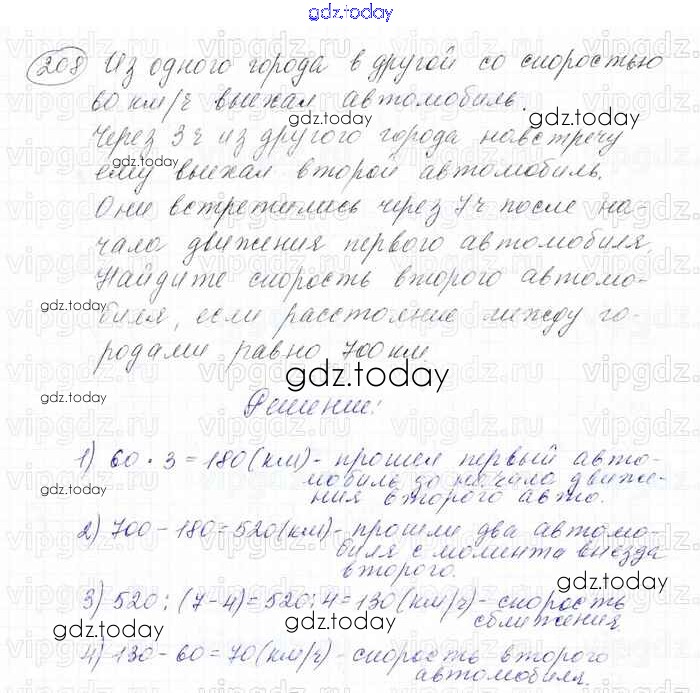 gdz.today
208 Из одного города в другой со скоростью
60 км/ч выехал автомобиль.
Через 3 ч из другого города навстречу
ему выехал второй автомобиль.
Они встретились через 7 ч после на-
чало движения первого автомобиля.
Найдите скорость второго автомо-
биля, если расстояние между го-
родами равно 700 км
Решение:
1) 60 · 3 = 180 (км) - прошел первый авто-
мобиль до начало движе-
ния второго авто.
2) 700 - 180 = 520 (км) - прошли два автомо-
биля с момента выезда
второго.
3) 520 : (7-4) = 520 : 4 = 130 (км/ч) - скорость
сближения.
4) 130 - 60 = 70 (км/ч) - скорость второго
автомобиля.